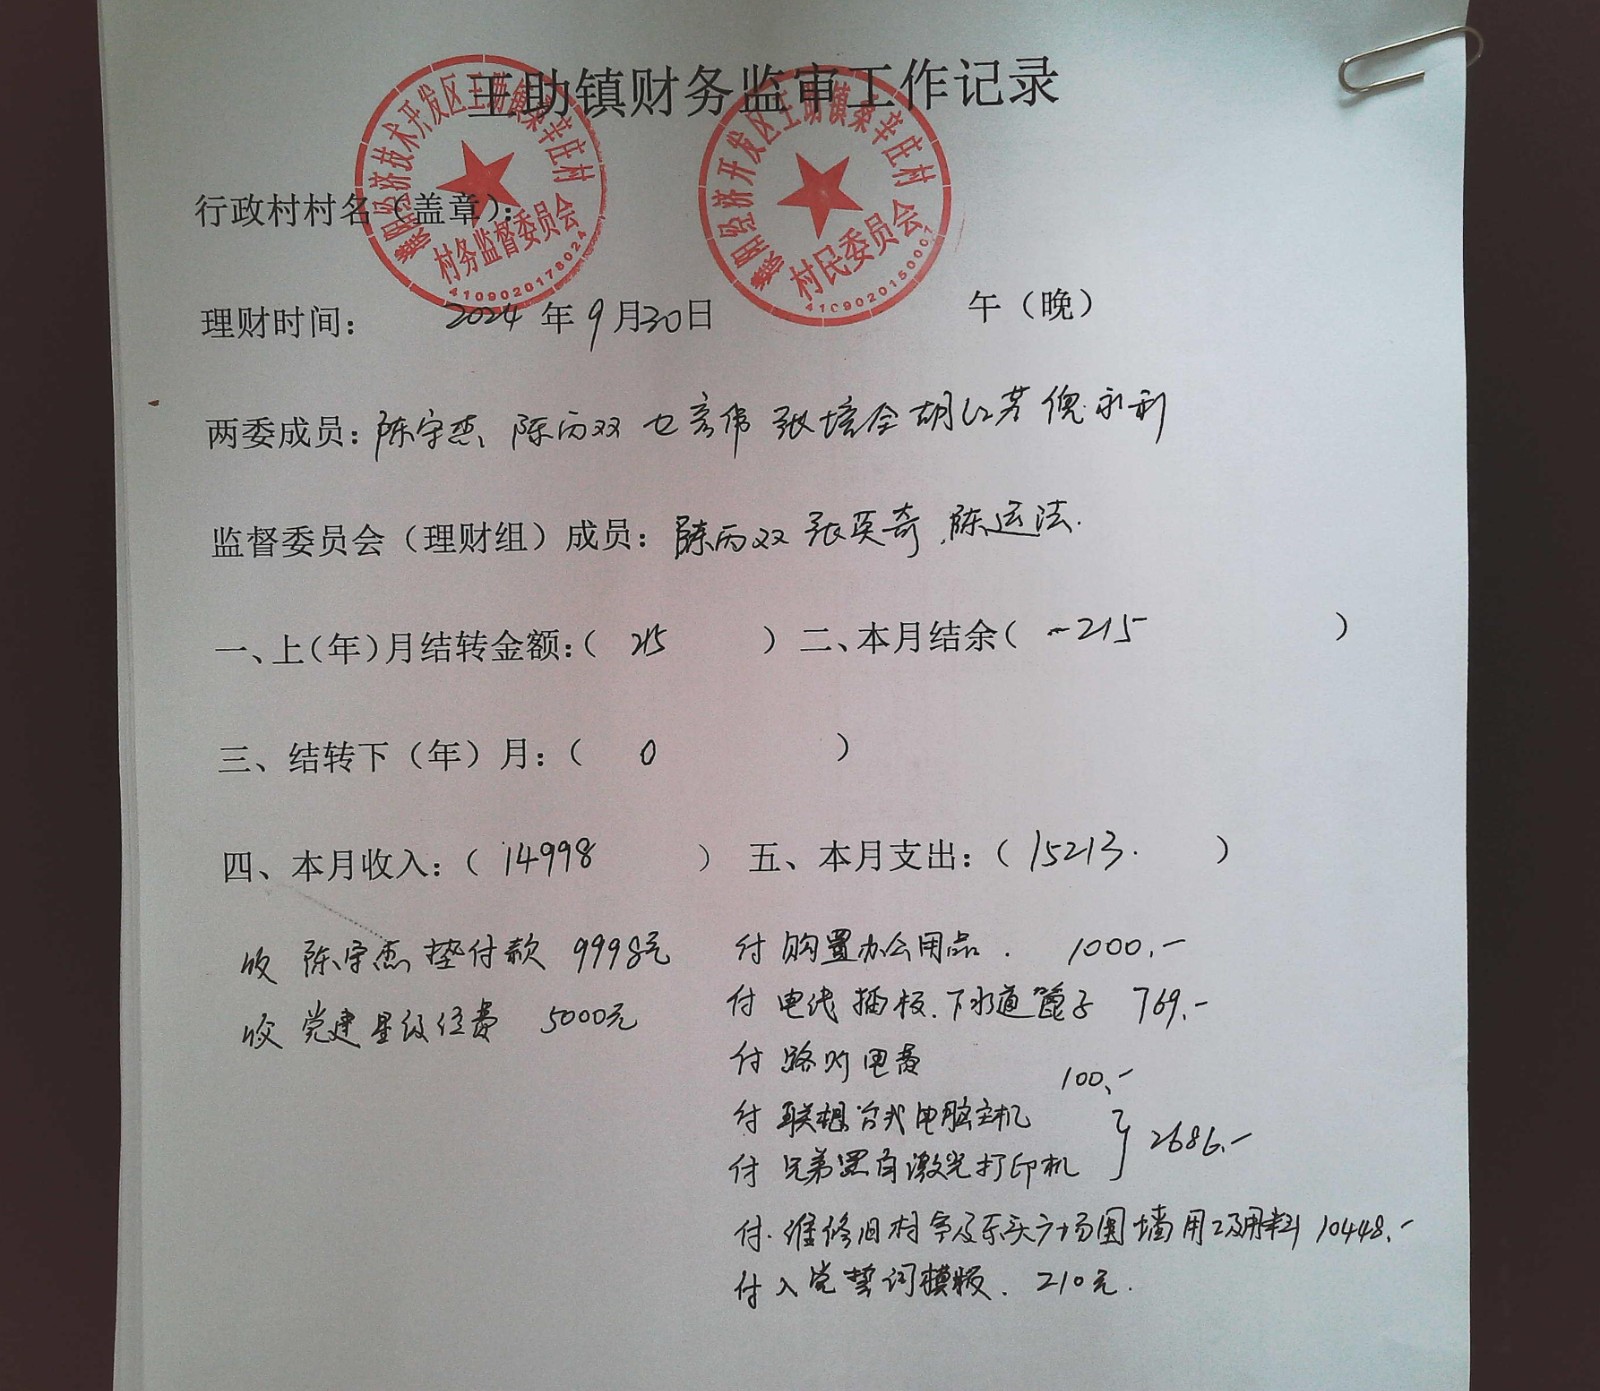 王助镇财务监审工作记录
濮阳经济技术开发区王助镇梁辛庄村
村务监督委员会
4109020178024
濮阳经济开发区王助镇梁辛庄村
村民委员会
4109020150007
行政村村名（盖章）：
理财时间： 2024 年 9 月30日 午（晚）
两委成员：陈宇杰、陈丙双 彦伟 张培全 胡红芳 倪永利
监督委员会（理财组）成员：陈丙双 张英奇、陈运法.
一、上（年）月结转金额：（ 215 ） 二、本月结余（ -215 ）
三、结转下（年）月：（ 0 ）
四、本月收入：（ 14998 ） 五、本月支出：（ 15213. ）
收 陈宇杰 垫付款 9998元
收 党建星级经费 5000元
付 购置办公用品. 1000.-
付 电线 插板、下水道篦子 769.-
付 路灯电费 100.-
付 联想台式电脑主机
付 兄弟黑白激光打印机 } 2686.-
付. 维修旧村室及东头广场围墙用工及用料 10448.-
付入党誓词模板. 210元.